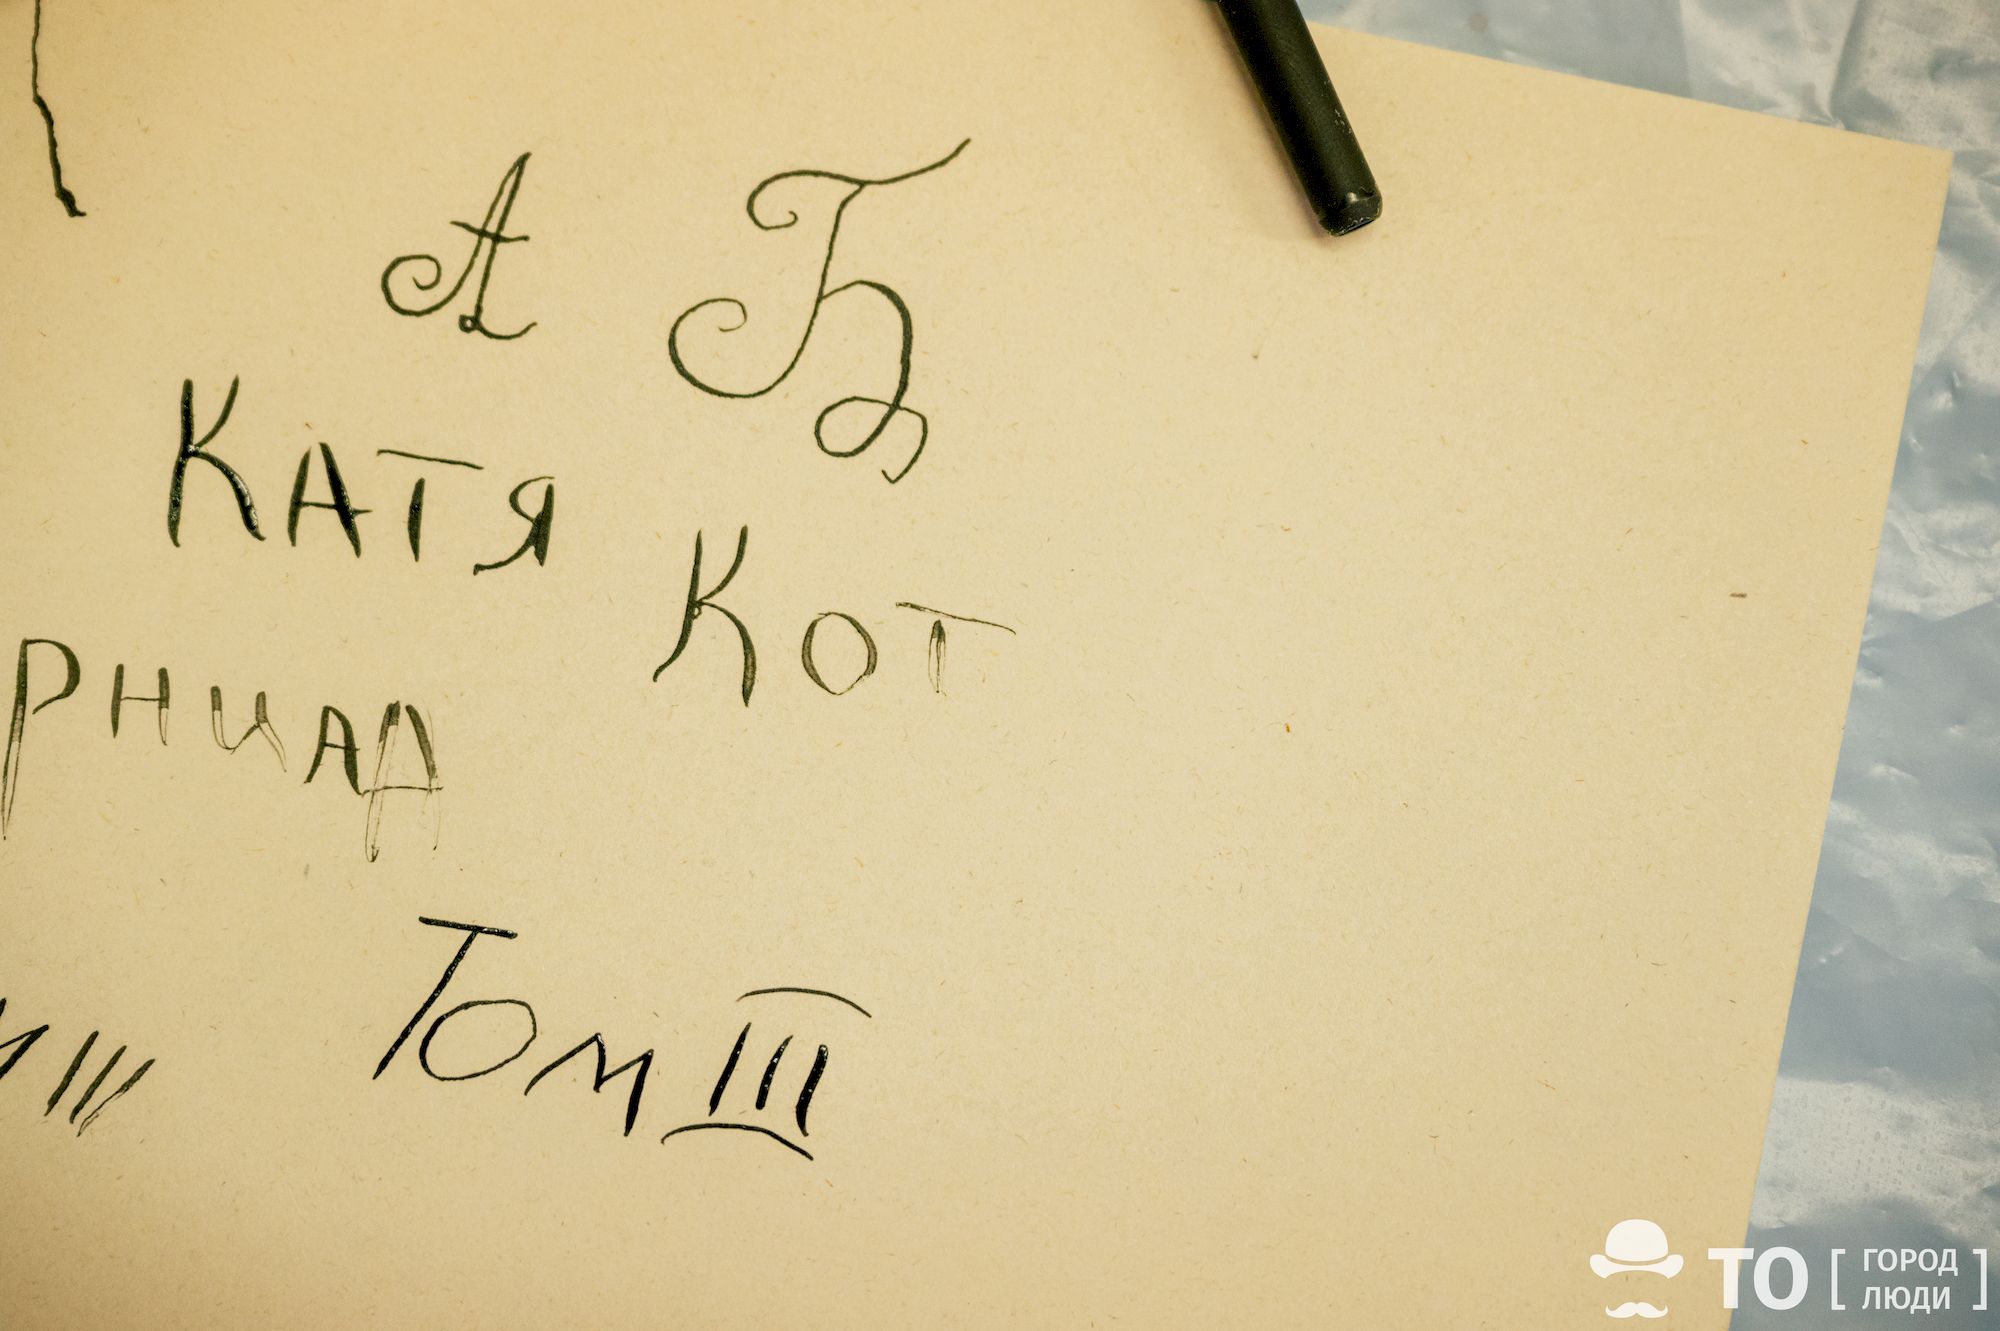 А Б
КАТЯ
Кот
РНИАД
Том III
ТО [ ГОРОД
ЛЮДИ ]